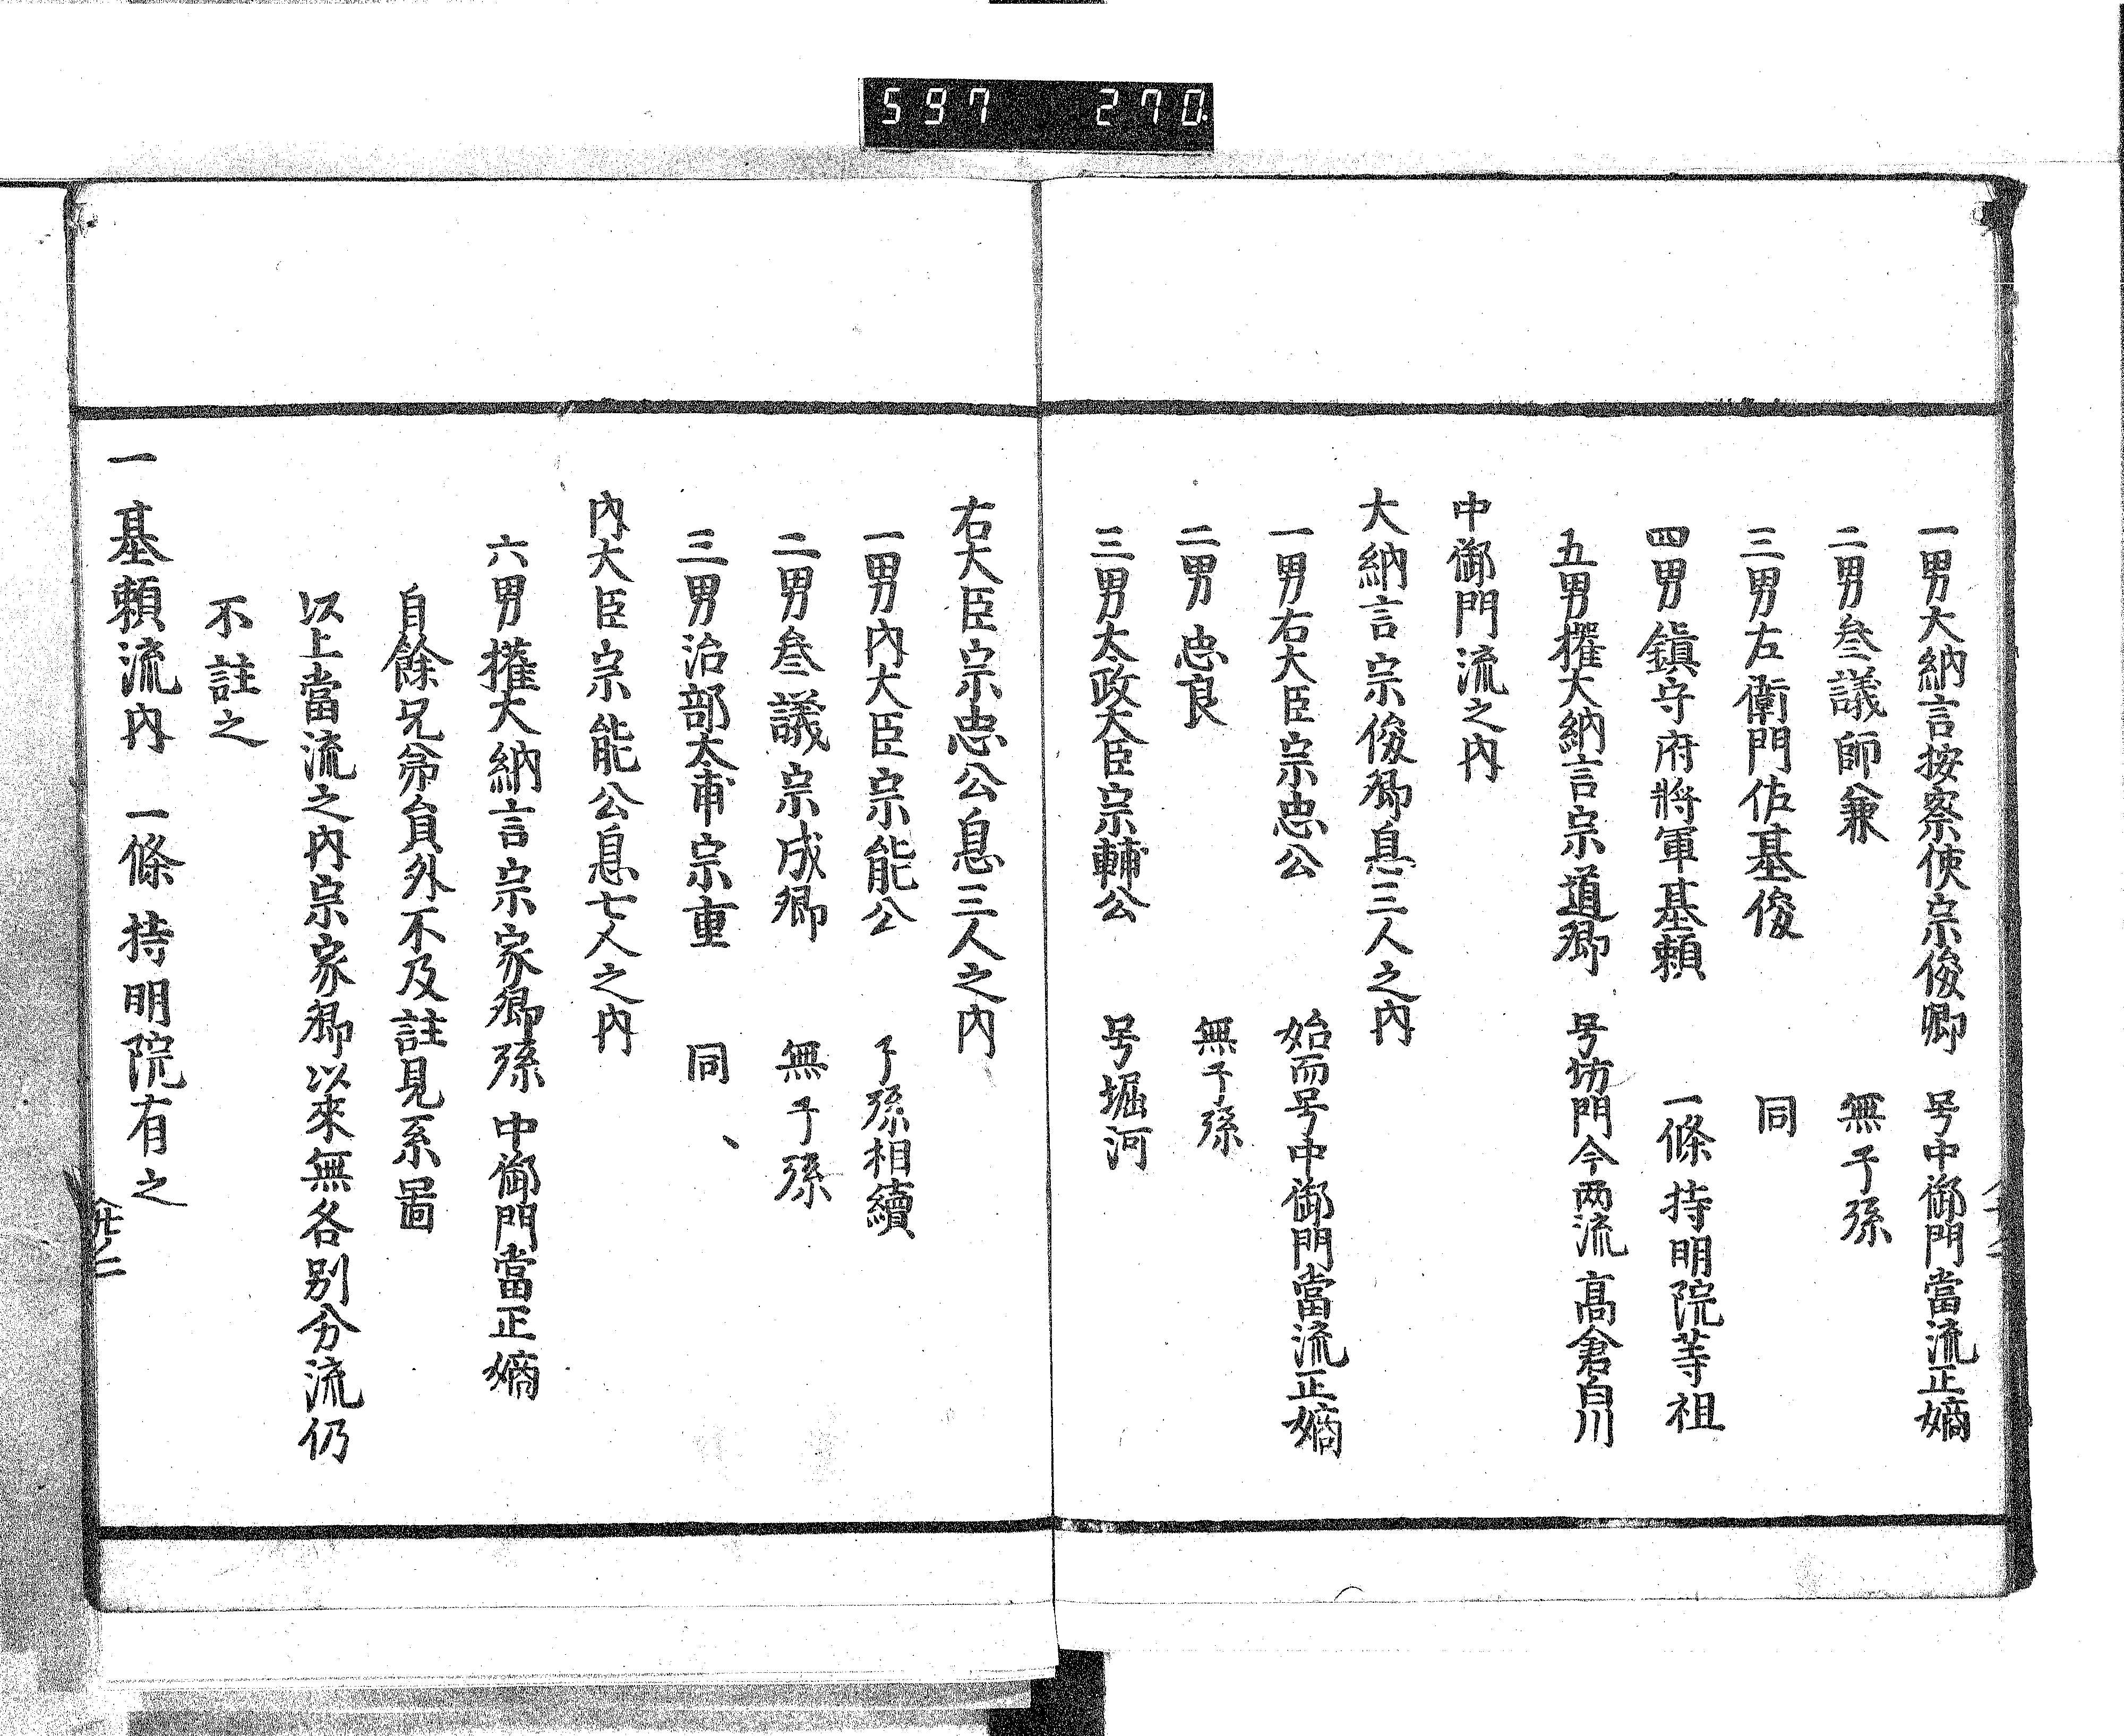 597 270
一男大納言按察使宗俊卿 号中御門當流正嫡
二男叅議師兼 無子孫
三男左衛門佐基俊 同
四男鎮守府將軍基頼 一條持明院等祖
五男權大納言宗道卿 号坊門今両流高倉白川
中御門流之内
大納言宗俊卿息三人之内
一男右大臣宗忠公 始而号中御門當流正嫡
二男忠良 無子孫
三男太政大臣宗輔公 号堀河
右大臣宗忠公息三人之内
一男内大臣宗能公 子孫相續
二男叅議宗成卿 無子孫
三男治部太甫宗重 同、
内大臣宗能公息七人之内
六男權大納言宗家卿孫 中御門當正嫡
自餘兄弟員外不及註見系啚
以上當流之内宗家卿以來無各別分流仍
不註之
一基頼流内 一條持明院有之